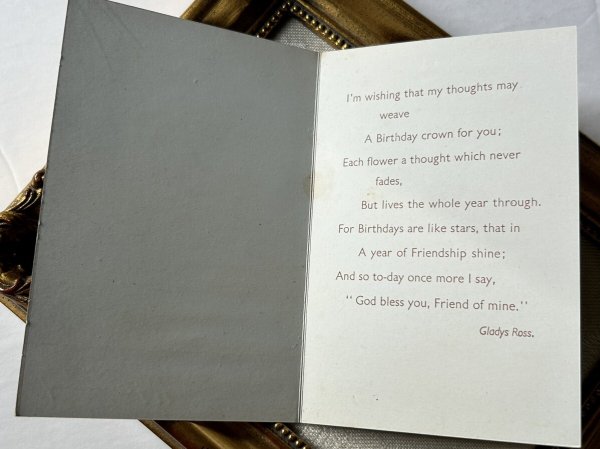 I'm wishing that my thoughts may
weave
A Birthday crown for you;
Each flower a thought which never
fades,
But lives the whole year through.
For Birthdays are like stars, that in
A year of Friendship shine;
And so to-day once more I say,
"God bless you, Friend of mine."
Gladys Ross.